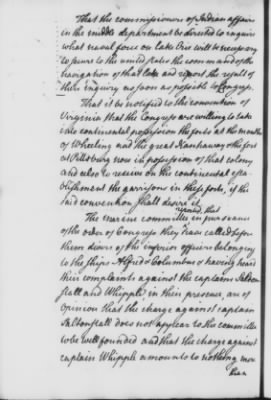 That the commissioners of Indian affairs
in the middle department be directed to enquire
what naval force on Lake Erie will be necessary
to secure to the united states the command of the
navigation of that lake and report the result of
their inquiry as soon as possible to Congress.
That it be notified to the convention of
Virginia that the Congress are willing to take
into continental possession the forts at the mouth
of Wheeling and the great Kanhaway the fort
at Pittsburg now in possession of that colony
and also to receive on the continental esta-
blishment the garrisons in these forts, if the
said convention shall desire it
The marine committee in pursuance
reported, that
of the order of Congress they have called before
them divers of the inferior officers belonging
to the ships Alfred & Columbus & having heard
their complaints against the captains Salton-
stall and Whipple in their presence, are of
Opinion that the charge against captain
Saltonstall does not appear to the committee
to be well founded and that the charge against
captain Whipple amounts to nothing more
than